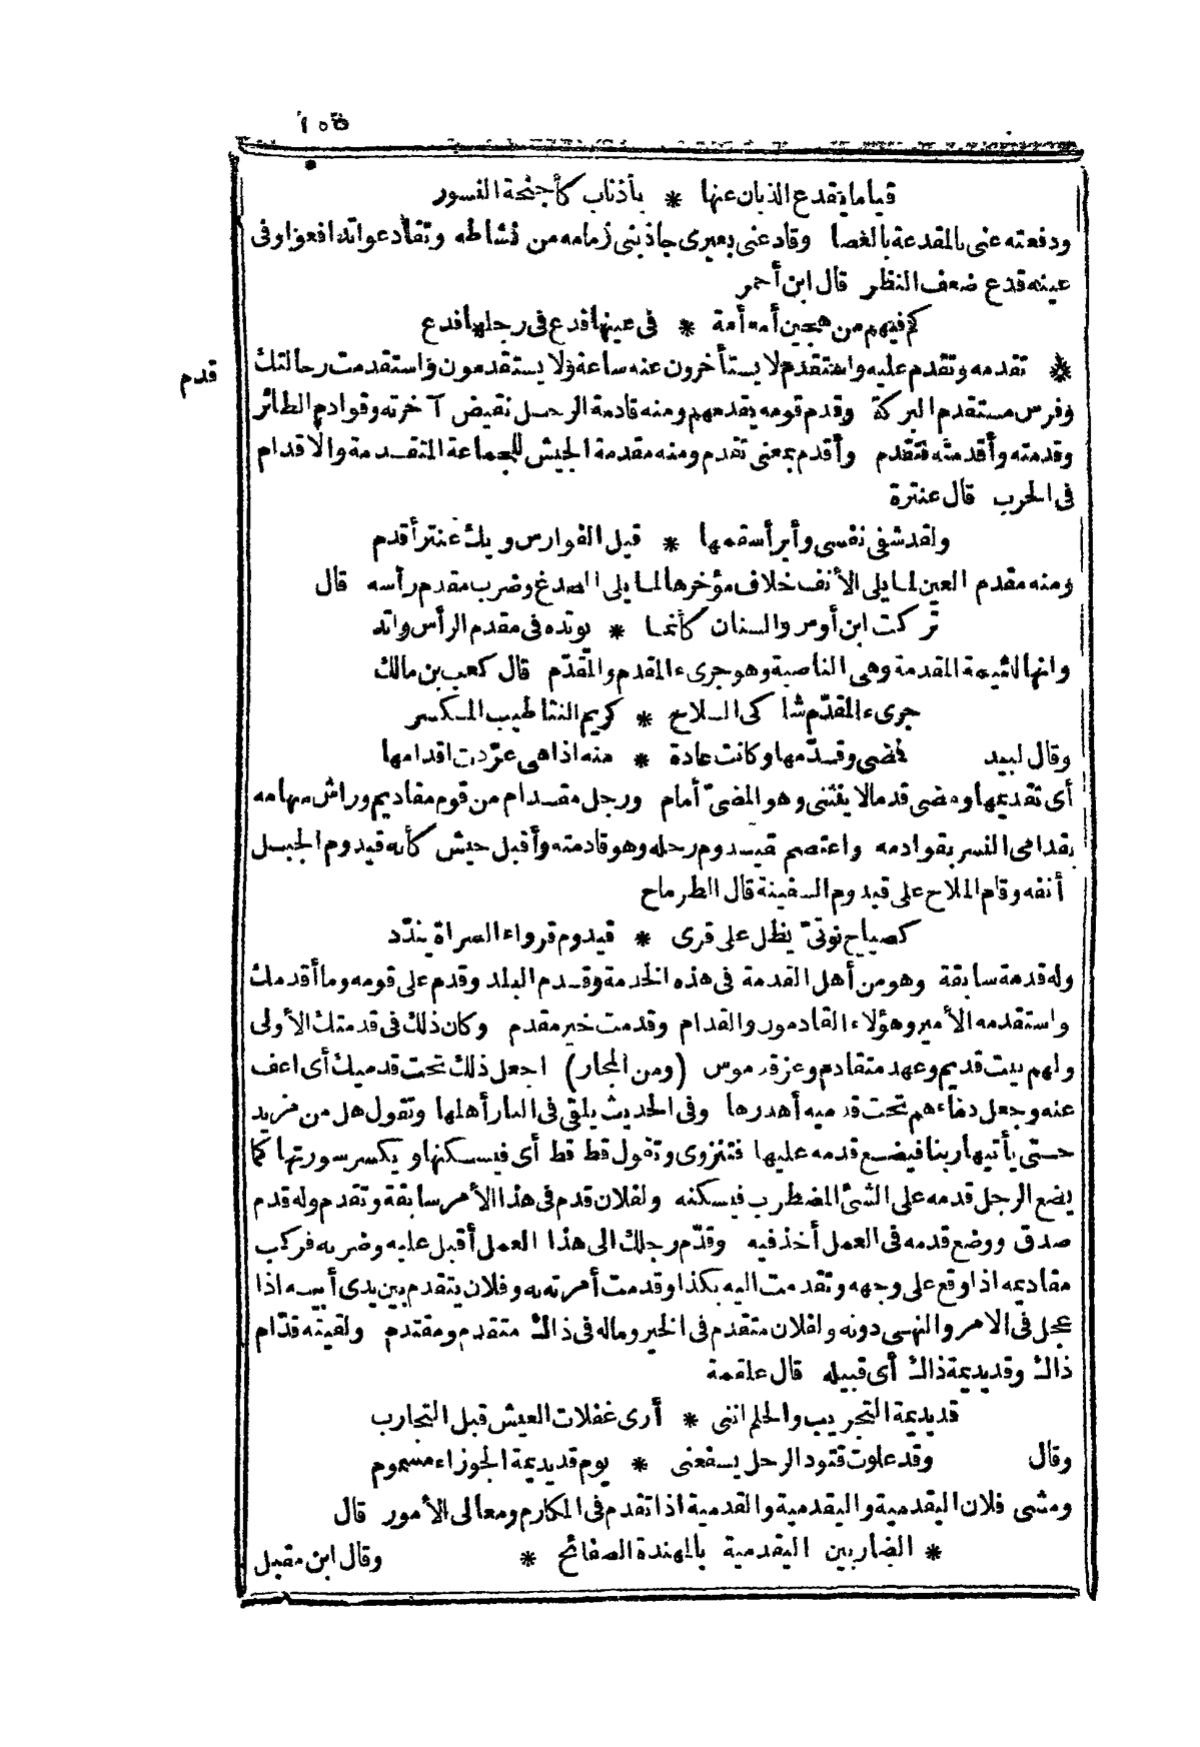 قياما يقدع الذبان عنها * بأذناب كأجنحة النسور
ودفعته عنى بالمقدعة بالعصا وقادعنى بعيرى جاذبنى زمامه من نشاطه وتقادعوا تدافعوا وفى
عينه قدع ضعف النظر قال ابن أحمر
كم فيهم من هجين أمه أمة * فى عينها قدع فى رجلها فدع
قدم
* تقدمه وتقدم عليه واستقدم لا يستأخرون عنه ساعة ولا يستقدمون واستقدمت رحالتك
وفرس مستقدم البركة وقدم قومه يقدمهم ومنه قادمة الرحل نقيض آخرته وقوادم الطائر
وقدمته وأقدمته فتقدم وأقدم بمعنى تقدم ومنه مقدمة الجيش للجماعة المتقدمة والاقدام
فى الحرب قال عنترة
ولقد شفى نفسى وأبرأ سقمها * قيل الفوارس ويك عنتر أقدم
ومنه مقدم العين لما يلى الأنف خلاف مؤخرها لما يلى الصدغ وضرب مقدم رأسه قال
تركت ابن أوس والسنان كأنما * يوتده فى مقدم الرأس واتد
وانها لئيمة المقدمة وهى الناصية وهو جرىء المقدم والمقدّم قال كعب بن مالك
جرىء المقدّم شاكى السلاح * كريم النثا طيب المكسر
وقال لبيد فمضى وقدّمها وكانت عادة * منه اذا هى عرّدت اقدامها
أى تقديمها ومضى قدما لا ينثنى وهو المضىّ أمام ورجل مقدام من قوم مقاديم وراش سهامه
بقدامى النسر بقوادمه واعتصم قيدوم رحله وهو قادمته وأقبل جيش كأنه قيدوم الجبل
أنفه وقام الملاح على قيدوم السفينة قال الطرماح
كصياح نوتىّ يظل على قرى * قيدوم قرواء السراة يندّد
وله قدمة سابقة وهو من أهل القدمة فى هذه الخدمة وقدم البلد وقدم على قومه وما أقدمك
واستقدمه الأمير وهؤلاء القادمون والقدام وقدمت خير مقدم وكان ذلك فى قدمتك الأولى
ولهم بيت قديم وعهد متقادم وعزة قدموس (ومن المجاز) اجعل ذلك تحت قدميك أى اعف
عنه وجعل دماءهم تحت قدميه أهدرها وفى الحديث يلقى فى النار أهلها وتقول هل من مزيد
حتى يأتيها ربنا فيضع قدمه عليها فتنزوى وتقول قط قط أى فيسكنها ويكسر سورتها كما
يضع الرجل قدمه على الشئ المضطرب فيسكنه ولفلان قدم فى هذا الأمر سابقة وتقدم وله قدم
صدق ووضع قدمه فى العمل أخذ فيه وقدّم رجلك الى هذا العمل أقبل عليه وضربه فركب
مقاديمه اذا وقع على وجهه وتقدمت اليه بكذا وقدمت أمرته به وفلان يتقدم بين يدى أبيه اذا
عجل فى الامر والنهى دونه ولفلان متقدم فى الخير وماله فى ذاك متقدم ومقتدم ولقيته قدّام
ذاك وقديديمة ذاك أى قبيله قال علقمة
قديديمة التجريب والحلم اننى * أرى غفلات العيش قبل التجارب
وقال وقد علوت قتود الرحل يسفعنى * يوم قديديمة الجوزاء مسموم
ومشى فلان اليقدمية والتقدمية والقدمية اذا تقدم فى المكارم ومعالى الأمور قال
* الضاربين اليقدمية بالمهندة الصفائح * وقال ابن مقبل